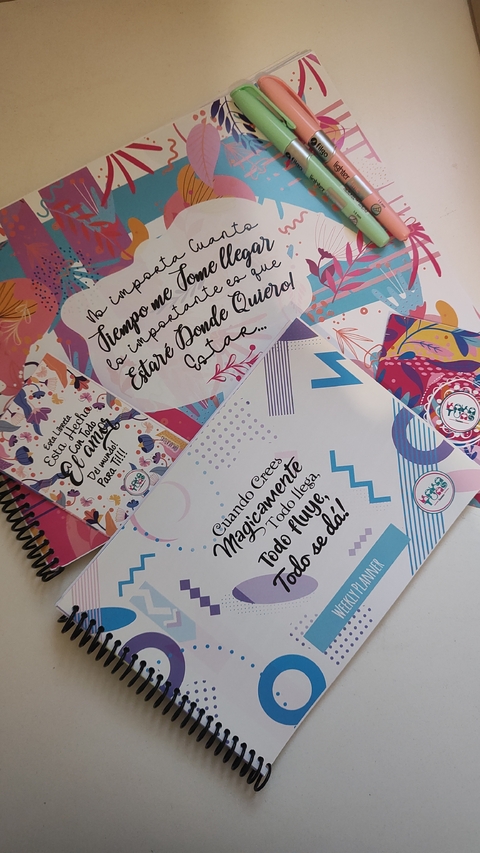 No importa Cuanto
Tiempo me Tome llegar
lo importante es que
Estaré Donde Quiero!
Estar...
Esta Libreta
Esta Hecha
Con Todo
El amor
Del mundo!
Para Ti!!!
Cuando Crees
Magicamente
Todo llega,
Todo fluye,
Todo se dá!
WEEKLY PLANNER
filgo
lighter
filgo
lighter